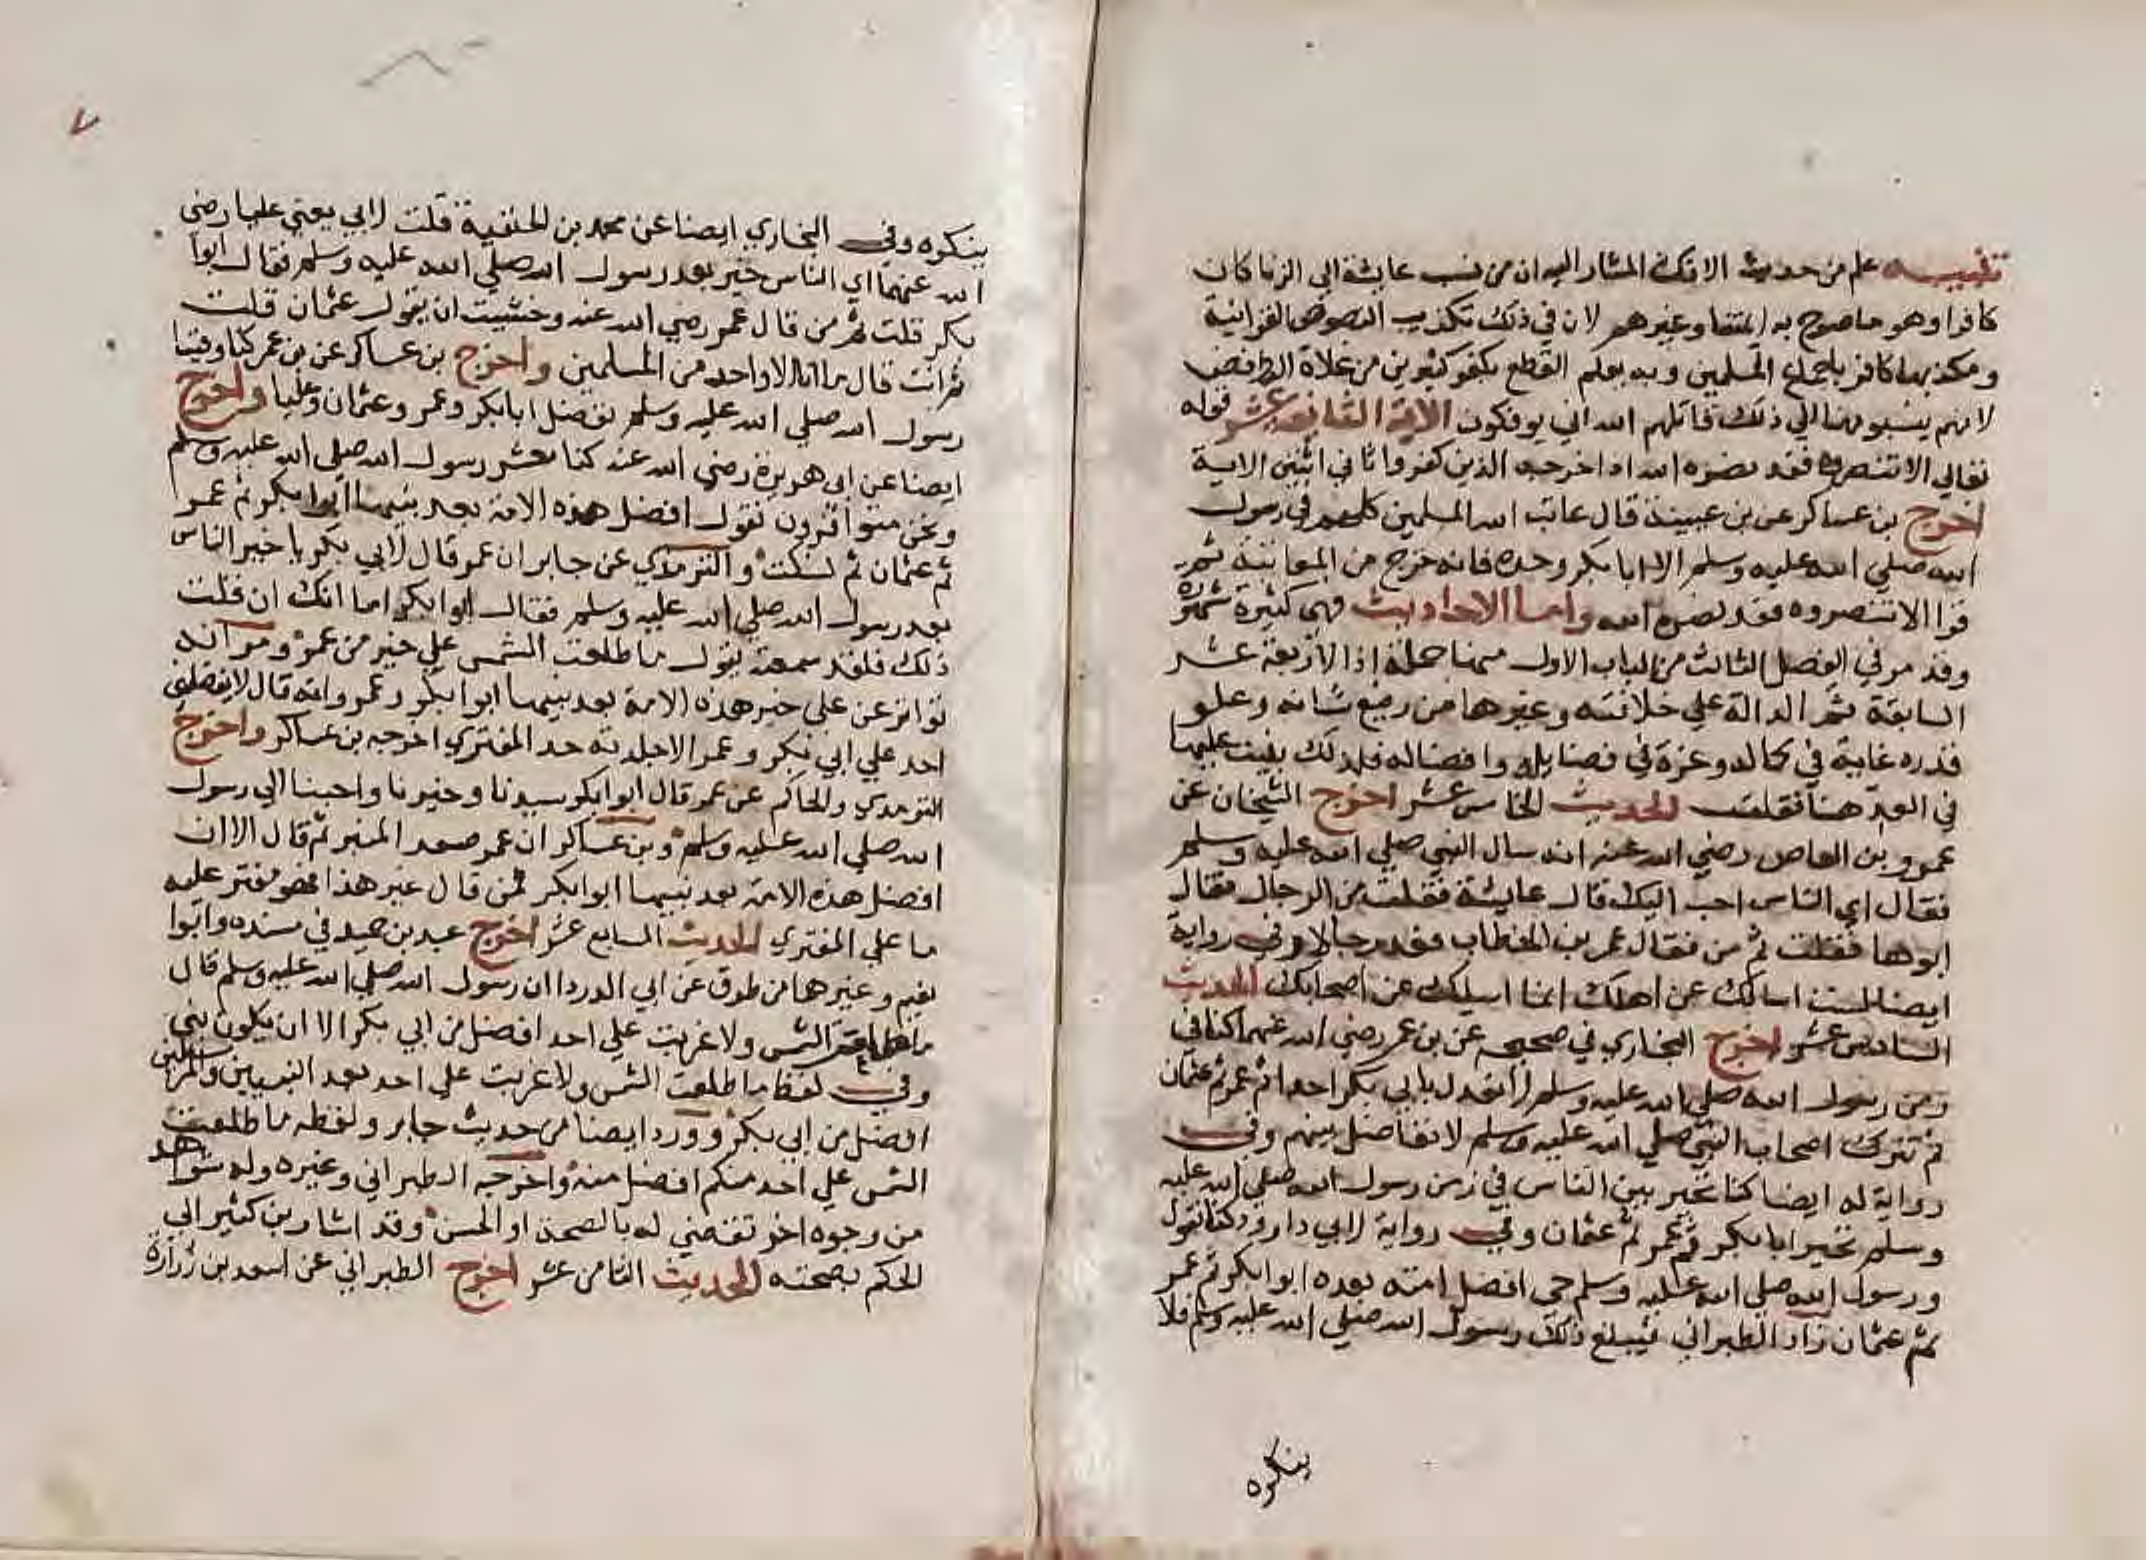 تنبيه علم من حديث الافك المشار اليه ان من نسب عايشة الي الزنا كان
كافرا وهو ما صرح به ايمتنا وغيرهم لان في ذلك تكذيب النصوص القرانية
ومكذبها كافر باجماع المسلمين وبه يعلم القطع بكفر كثيرين من غلاة الروافض
لانهم ينسبونها الي ذلك قاتلهم الله اني يوفكون الاية الثانية عشر قوله
تعالي الا تنصروه فقد نصره الله اذ اخرجه الذين كفروا ثاني اثنين الاية
اخرج بن عساكر عن بن عيينة قال عاتب الله المسلمين كلهم في رسول
الله صلي الله عليه وسلم الا ابا بكر وحده فانه خرج من المعاتبة ثم
قرا الا تنصروه فقد نصره الله واما الاحاديث فهي كثيرة مشهورة
وقد مر في الفصل الثالث من الباب الاول منها جملة اذ الاربعة عشر
السابقة ثم الدالة علي خلافته وغيرها من رفيع شانه وعلو
قدره غاية في كماله وغرة في فضايله وافضاله فلذلك بنيت عليها
في العد هنا فقلت الحديث الخامس عشر اخرج الشيخان عن
عمرو بن العاص رضي الله عنه انه سال النبي صلي الله عليه وسلم
فقال اي الناس احب اليك قال عايشة فقلت من الرجال فقال
ابوها فقلت ثم من فقال عمر بن الخطاب فعد رجالا وفي رواية
ايضا لست اسالك عن اهلك انما اسيلك عن اصحابك الحديث
السادس عشر اخرج البخاري في صحيحه عن بن عمر رضي الله عنهما كنا في
زمن رسول الله صلي الله عليه وسلم لا نعدل بابي بكر احدا ثم عمر ثم عثمان
ثم نترك اصحاب النبي صلي الله عليه وسلم لا نفاضل بينهم وفي
رواية له ايضا كنا نخير بين الناس في زمن رسول الله صلي الله عليه
وسلم نخير ابا بكر ثم عمر ثم عثمان وفي رواية لابي داوود كنا نقول
ورسول الله صلي الله عليه وسلم حي افضل امته بعده ابوا بكر ثم عمر
ثم عثمان زاد الطبراني فيبلغ ذلك رسول الله صلي الله عليه وسلم فلا
ينكره
٧
ينكره وفي البخاري ايضا عن محمد بن الحنفية قلت لابي يعني عليا رضي
الله عنهما اي الناس خير بعد رسول الله صلي الله عليه وسلم فقال ابوا
بكر قلت ثم من قال عمر رضي الله عنه وخشيت ان يقول عثمان قلت
ثم انت قال ما انا الا واحد من المسلمين واخرج بن عساكر عن بن عمر كنا وفينا
رسول الله صلي الله عليه وسلم نفضل ابابكر وعمر وعثمان وعليا واخرج
ايضا عن ابي هريرة رضي الله عنه كنا معشر رسول الله صلي الله عليه وسلم
ونحن متوافرون نقول افضل هذه الامة بعد نبيها ابوا بكر ثم عمر
ثم عثمان ثم نسكت والترمذي عن جابر ان عمر قال لابي بكر يا خير الناس
بعد رسول الله صلي الله عليه وسلم فقال ابوا بكر اما انك ان قلت
ذلك فلقد سمعته يقول ما طلعت الشمس علي خير من عمر ومر انه
تواتر عن علي خير هذه الامة بعد نبيها ابوا بكر وعمر وانه قال لا يفضلني
احد علي ابي بكر وعمر الا جلدته حد المفتري اخرجه بن عساكر واخرج
الترمذي والحاكم عن عمر قال ابوا بكر سيدنا وخيرنا واحبنا الي رسول
الله صلي الله عليه وسلم وبن عساكر ان عمر صعد المنبر ثم قال الا ان
افضل هذه الامة بعد نبيها ابوا بكر فمن قال غير هذا فهو مفتر عليه
ما علي المفتري الحديث السابع عشر اخرج عبد بن حميد في مسنده وابوا
نعيم وغيرهما من طرق عن ابي الدردا ان رسول الله صلي الله عليه وسلم قال
ما طلعت الشمس ولا غربت علي احد افضل من ابي بكر الا ان يكون نبي
وفي لفظ ما طلعت الشمس ولا غربت علي احد بعد النبيين والمرسلين
افضل من ابي بكر وورد ايضا من حديث جابر ولفظه ما طلعت
الشمس علي احد منكم افضل منه واخرجه الطبراني وغيره وله شواهد
من وجوه اخر تقضي له بالصحة او الحسن وقد اشار بن كثير الي
الحكم بصحته الحديث الثامن عشر اخرج الطبراني عن اسعد بن زرارة